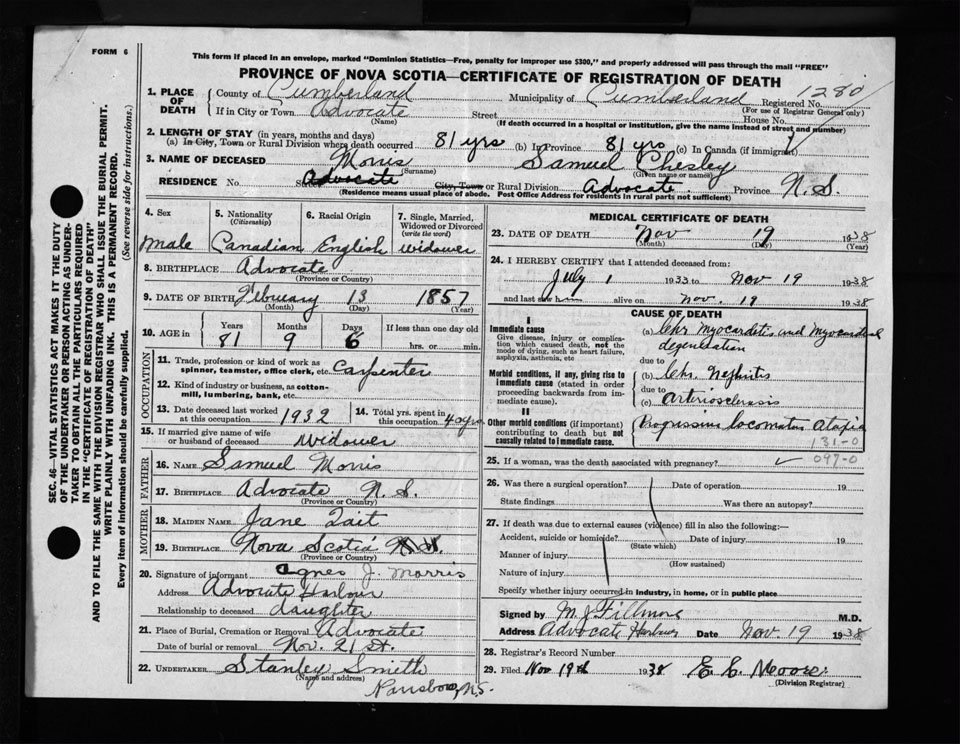 FORM 6
This form if placed in an envelope, marked "Dominion Statistics—Free, penalty for improper use $300," and properly addressed will pass through the mail "FREE"
PROVINCE OF NOVA SCOTIA—CERTIFICATE OF REGISTRATION OF DEATH
1280
1. PLACE OF DEATH County of Cumberland Municipality of Cumberland Registered No.
(For use of Registrar General only)
If in City or Town Advocate Street House No.
(Name) (If death occurred in a hospital or institution, give the name instead of street and number)
2. LENGTH OF STAY (in years, months and days)
(a) In City, Town or Rural Division where death occurred 81 yrs (b) In Province 81 yrs (c) In Canada (if immigrant)
3. NAME OF DECEASED Morris Samuel Chesley
(Surname) (Given name or names)
RESIDENCE No. Advocate City, Town or Rural Division Advocate Province N.S.
(Residence means usual place of abode. Post Office Address for residents in rural parts not sufficient)
4. Sex Male
5. Nationality (Citizenship) Canadian
6. Racial Origin English
7. Single, Married, Widowed or Divorced (write the word) widower
8. BIRTHPLACE Advocate
(Province or Country)
9. DATE OF BIRTH February 13 1857
(Month) (Day) (Year)
10. AGE in Years 81 Months 9 Days 6 If less than one day old hrs. or min.
OCCUPATION
11. Trade, profession or kind of work as spinner, teamster, office clerk, etc. Carpenter
12. Kind of industry or business, as cotton-mill, lumbering, bank, etc.
13. Date deceased last worked at this occupation 1932
14. Total yrs. spent in this occupation 40 yrs
15. If married give name of wife or husband of deceased widower
FATHER
16. NAME Samuel Morris
17. BIRTHPLACE Advocate N.S.
(Province or Country)
MOTHER
18. MAIDEN NAME Jane Tait
19. BIRTHPLACE Nova Scotia
(Province or Country)
20. Signature of informant Agnes J. Morris
Address Advocate Harbour
Relationship to deceased daughter
21. Place of Burial, Cremation or Removal Advocate
Date of burial or removal Nov. 21 st.
22. UNDERTAKER Stanley Smith
(Name and address)
Parrsboro, N.S.
MEDICAL CERTIFICATE OF DEATH
23. DATE OF DEATH Nov 19 1938
(Month) (Day) (Year)
24. I HEREBY CERTIFY that I attended deceased from:
July 1 1933 to Nov 19 1938
and last saw him alive on Nov. 19 1938
CAUSE OF DEATH
I
Immediate cause
Give disease, injury or complication which caused death, not the mode of dying, such as heart failure, asphyxia, asthenia, etc
(a) Chr Myocarditis and Myocardial degeneration
due to
Morbid conditions, if any, giving rise to immediate cause (stated in order proceeding backwards from immediate cause).
(b) Chr. Nephritis
due to
(c) Arteriosclerosis
II
Other morbid conditions (if important) contributing to death but not causally related to immediate cause.
Progressive locomotor Ataxia
131-0
097-0
25. If a woman, was the death associated with pregnancy?
26. Was there a surgical operation? Date of operation 19
State findings Was there an autopsy?
27. If death was due to external causes (violence) fill in also the following:—
Accident, suicide or homicide? Date of injury 19
(State which)
Manner of injury
(How sustained)
Nature of injury
Specify whether injury occurred in industry, in home, or in public place
Signed by M J Fillmore M.D.
Address Advocate Harbour Date Nov. 19 1938
28. Registrar's Record Number
29. Filed Nov 19th 1938 E C Moore
(Division Registrar)
SEC. 46—VITAL STATISTICS ACT MAKES IT THE DUTY
OF THE UNDERTAKER OR PERSON ACTING AS UNDER-
TAKER TO OBTAIN ALL THE PARTICULARS REQUIRED
IN THE "CERTIFICATE OF REGISTRATION OF DEATH"
AND TO FILE THE SAME WITH THE DIVISION REGISTRAR WHO SHALL ISSUE THE BURIAL PERMIT.
WRITE PLAINLY WITH UNFADING INK. THIS IS A PERMANENT RECORD.
Every item of information should be carefully supplied. (See reverse side for instructions.)